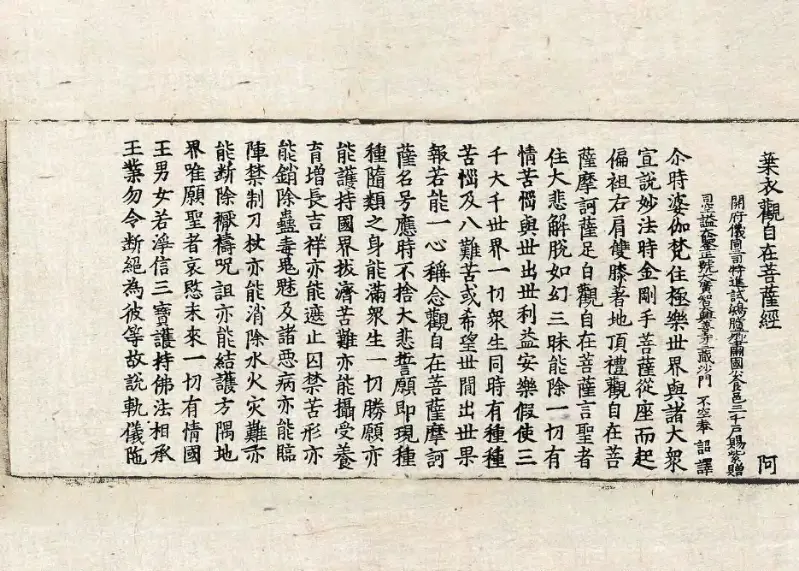 葉衣觀自在菩薩經 阿
開府儀同三司特進試鴻臚卿肅國公食邑三千戶賜紫贈
司空謚大鑒正號大廣智大興善寺三藏沙門 不空奉 詔譯
尒時婆伽梵住極樂世界與諸大衆
宣說妙法時金剛手菩薩從座而起
偏袒右肩雙膝著地頂禮觀自在菩
薩摩訶薩足白觀自在菩薩言聖者
住大悲解脫如幻三昧能除一切有
情苦惱與世出世利益安樂假使三
千大千世界一切衆生同時有種種
苦惱及八難苦或希望世間出世果
報若能一心稱念觀自在菩薩摩訶
薩名号應時不捨大悲誓願即現種
種隨類之身能滿衆生一切勝願亦
能護持國界拔濟苦難亦能攝受養
育增長吉祥亦能遮止囚禁苦形亦
能銷除蠱毒鬼魅及諸惡病亦能臨
陣禁制刀杖亦能消除水火灾難亦
能斷除禳禱呪詛亦能結護方隅地
界唯願聖者哀愍未來一切有情國
王男女若淨信三寶護持佛法相承
王業勿令斷絕為彼等故說軌儀陁